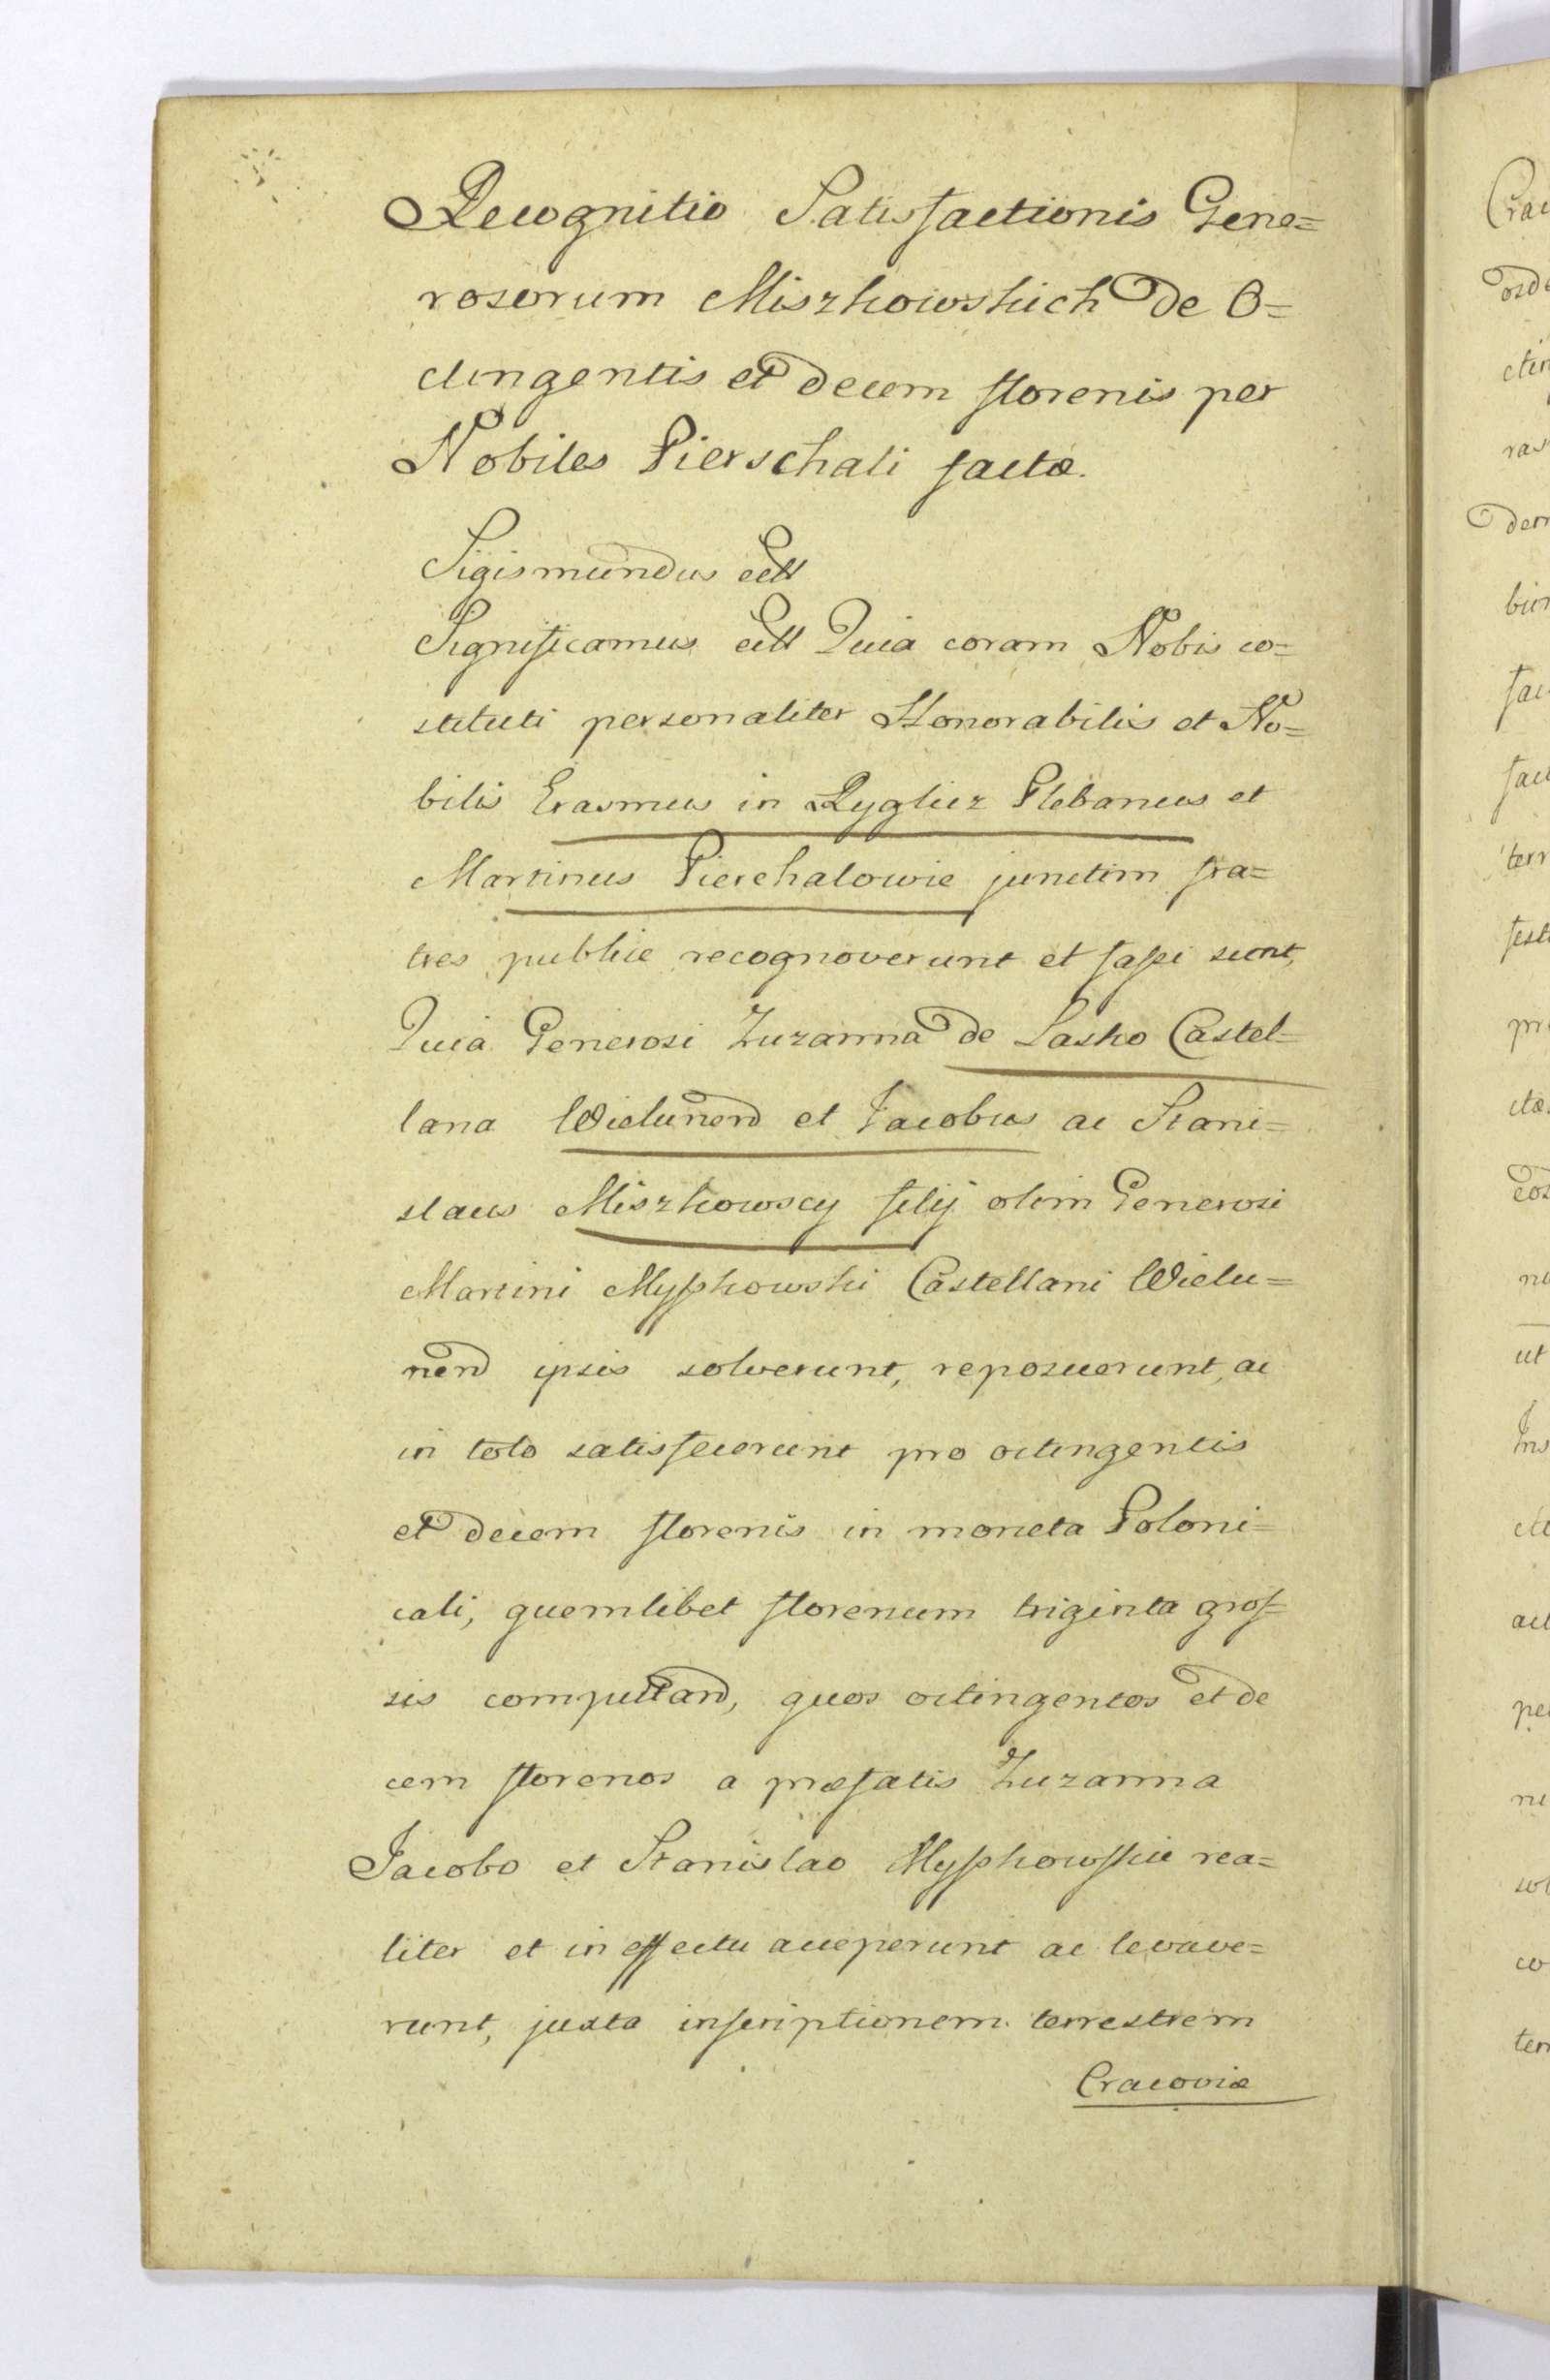 Recognitio Satisfactionis Gene=
rosorum Miszkowskich de O=
ctingentis et decem florenis per
Nobiles Pierschali factæ.
Sigismundus ectt
Significamus ectt Quia coram Nobis co=
stituti personaliter Honorabilis et No=
bilis Erasmus in Ryglicz Plebanus et
Martinus Pierchalowie junctim fra=
tres publice recognoverunt et faſsi sunt,
Quia Generosi Zuzanna de Lasko Castel=
lana Wielunen et Jacobus ac Stani=
slaus Miszkowscy filij olim Generosi
Martini Myſzkowski Castellani Wielu=
nen ipsis solverunt, reposuerunt, ac
in toto satisfecerunt pro octingentis
et decem florenis in moneta Poloni=
cali, quemlibet florenum triginta groſ=
sis computtand, quos octingentos et de
cem florenos a præfatis Zuzanna
Jacobo et Stanislao Myſzkowſkie rea=
liter et in effectu acceperunt ac levave=
runt, juxta inſcriptionem terrestrem
Cracoviæ
Crac
orde
ctin
ras
ter
fest
pr
ctæ
ut
ten